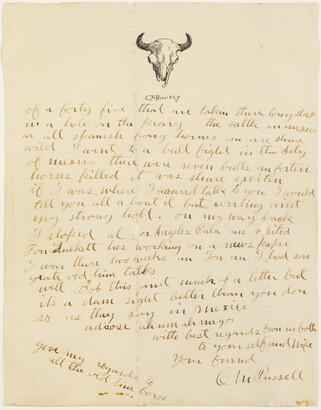 CM Russell
of a forty five that are takin there long sleep
in a hole in the prary the cattle in mexico
ar all spanish long hornes an are shure
wild I went to a bull fight in the City
of mexico there were seven bulls an forten
horses killed it was shure
if I was where I could talk to you I would
tell you all a bout it but writing aint
my strong holt. on my way back
I stoped at Los Angeles Cala an visited
Tom he is working on a news paper
I was there two weeks an Tom an I had som
grate old time talks
well Bob this aint much of a letter but
its a dam sight better than you don
so as they say in mexico
adiose
with best regards from us both
to your self and Wife
Your friend
C M Russell
give my regards to
all the old time boys